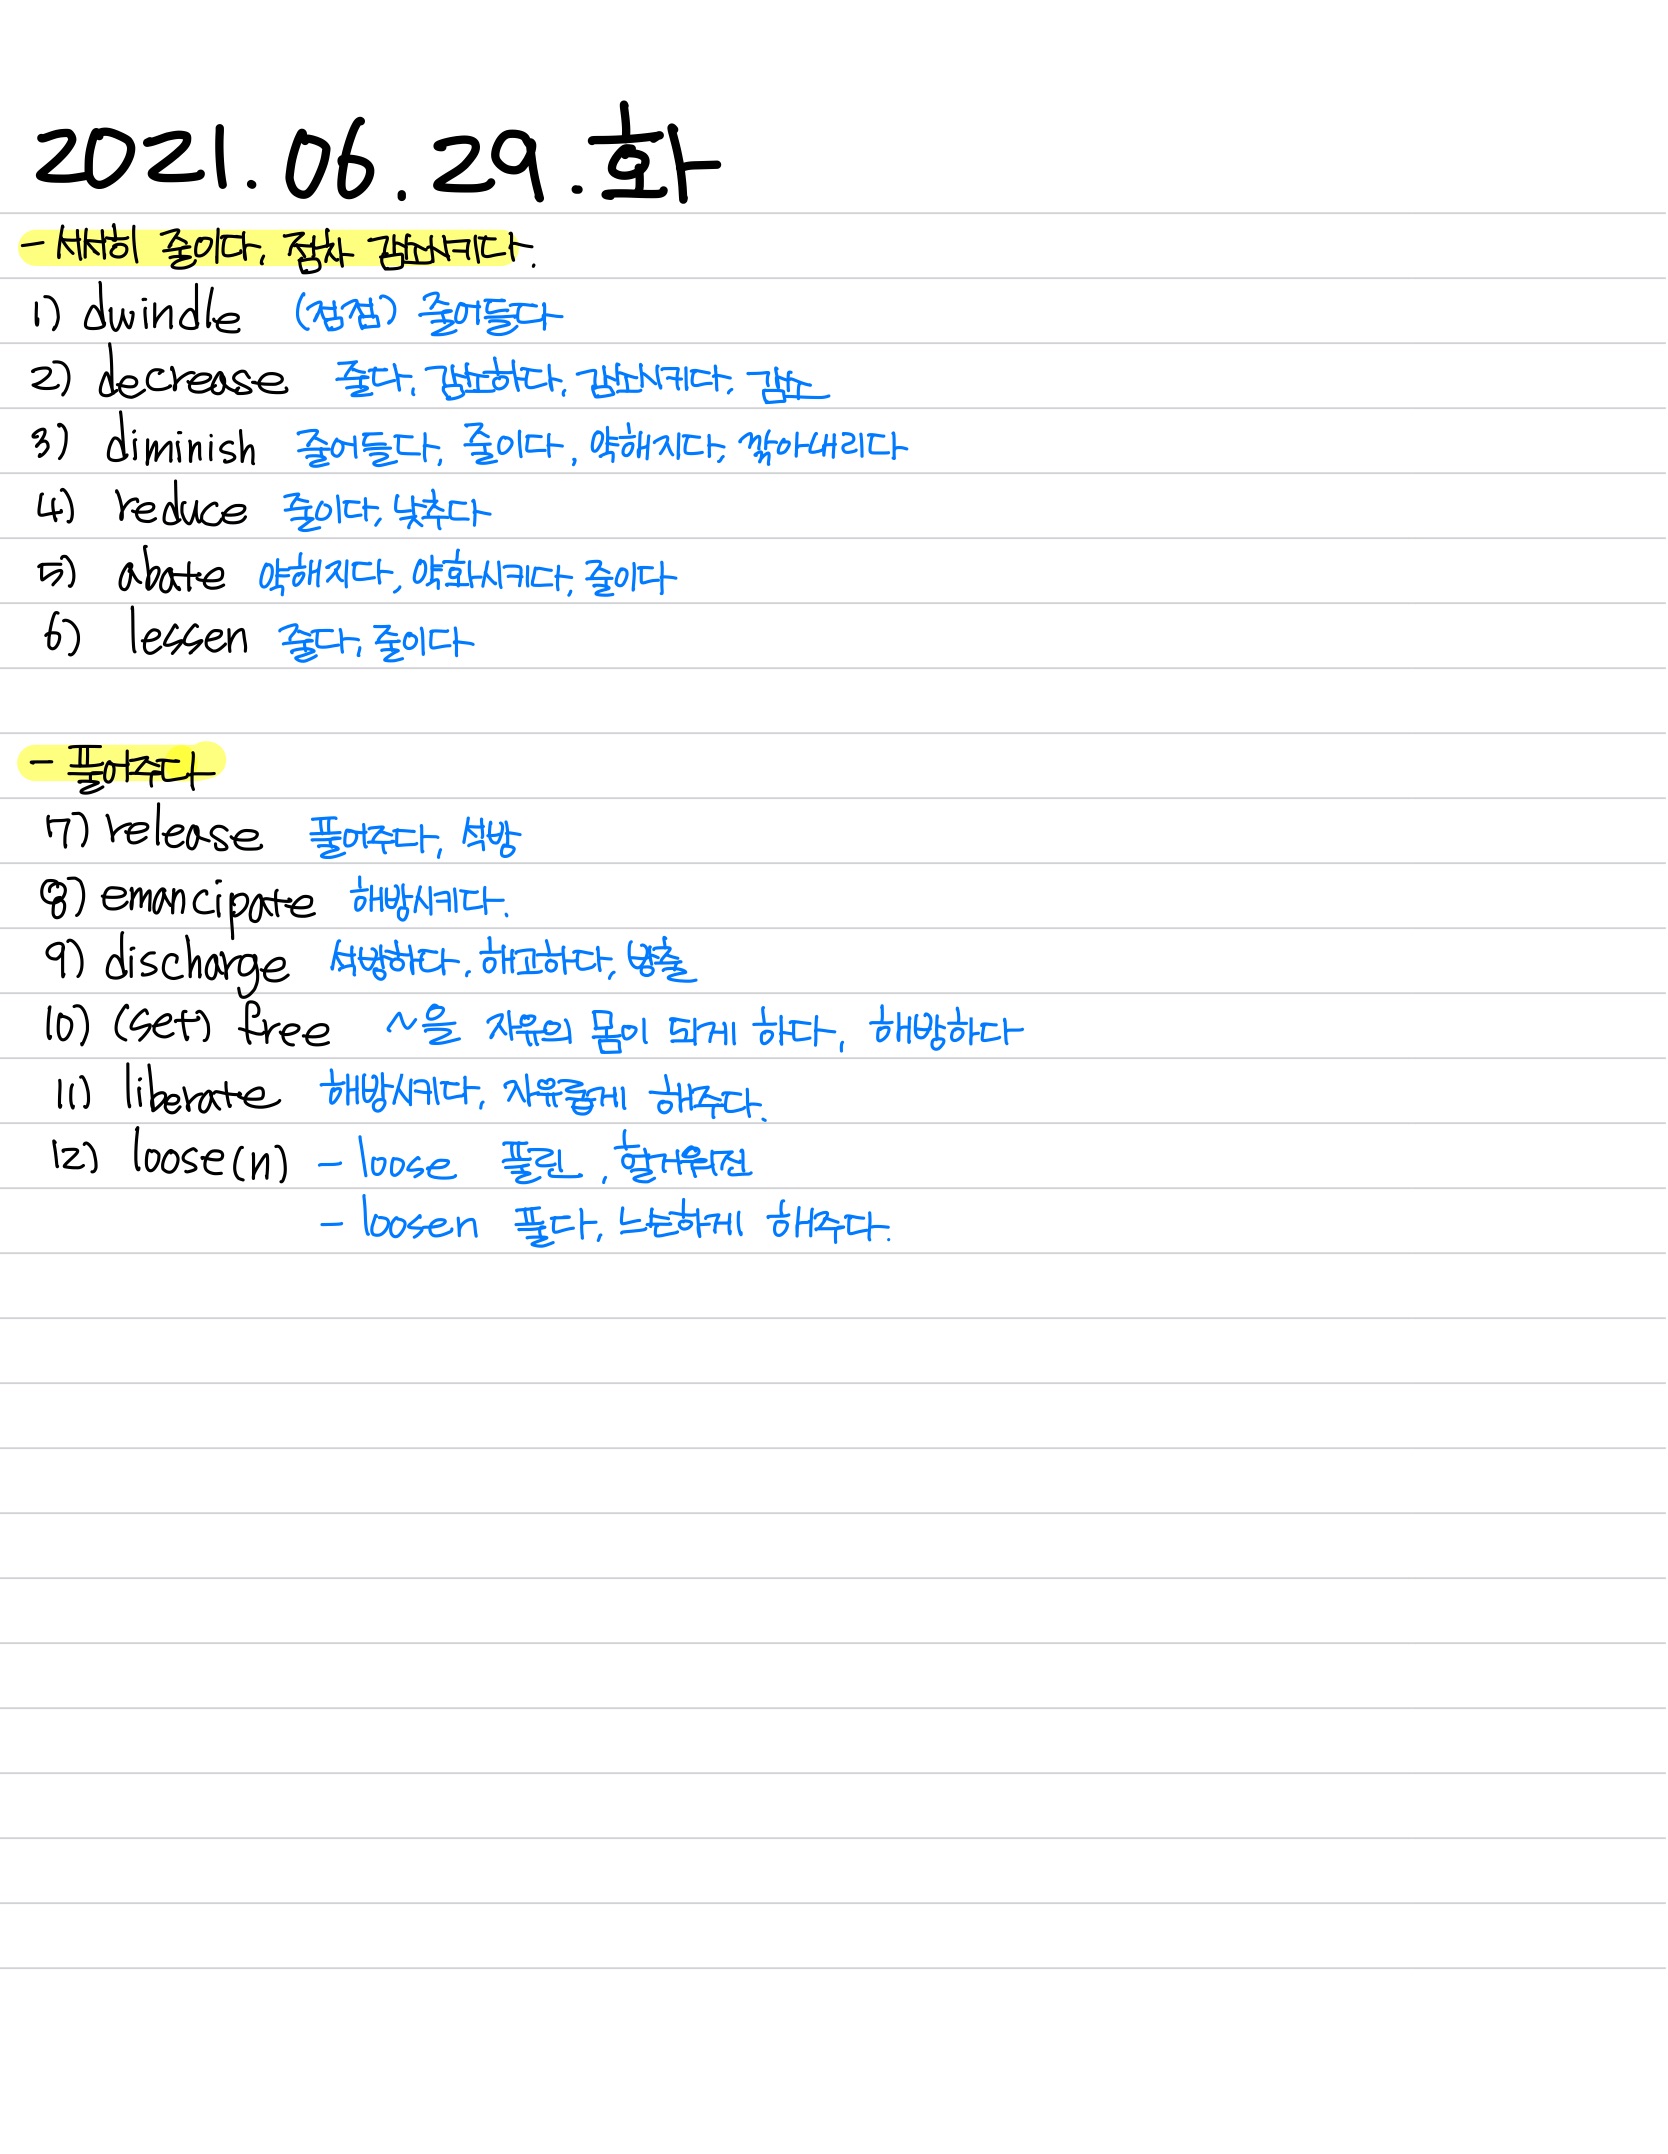 2021.06.29.화
- 서서히 줄이다, 점차 감소시키다.
1) dwindle (점점) 줄어들다
2) decrease 줄다, 감소하다, 감소시키다, 감소
3) diminish 줄어들다, 줄이다, 약해지다, 깎아내리다
4) reduce 줄이다, 낮추다
5) abate 약해지다, 약화시키다, 줄이다
6) lessen 줄다, 줄이다
- 풀어주다
7) release 풀어주다, 석방
8) emancipate 해방시키다.
9) discharge 석방하다, 해고하다, 방출
10) (set) free ~을 자유의 몸이 되게 하다, 해방하다
11) liberate 해방시키다, 자유롭게 해주다.
12) loose(n) - loose 풀린, 헐거워진
- loosen 풀다, 느슨하게 해주다.